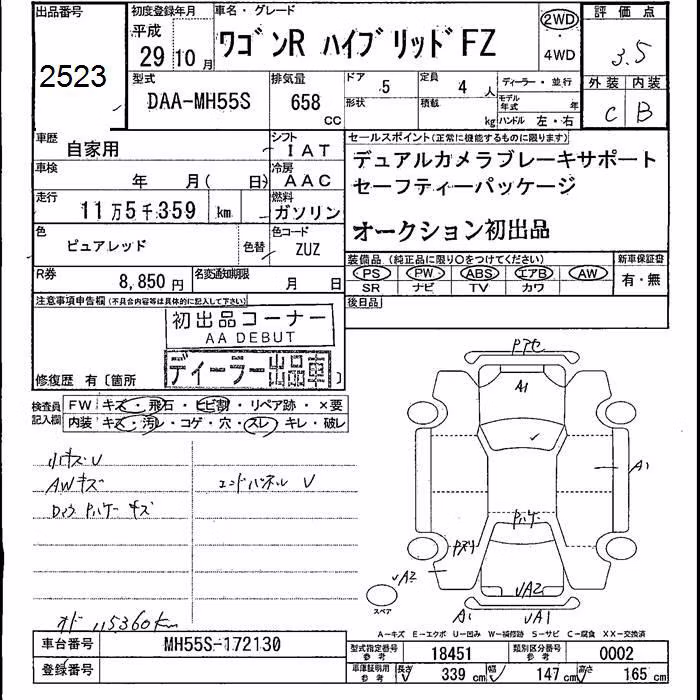 出品番号 初度登録年月 車名・グレード 評価点
2523 平成 29 10月 ワゴンR ハイブリッドFZ 2WD ・ 4WD 3.5
型式 DAA-MH55S 排気量 658 CC ドア 5 形状 定員 4人 積載 kg ディーラー・並行 モデル年式 年 ハンドル 左・右 外装 C 内装 B
車歴 自家用 シフト IAT
車検 年 月( 日) 冷房 AAC
走行 11万5千359 km 燃料 ガソリン
色 ピュアレッド 色替 色コード ZUZ
R券 8,850円 名変通知期限 月 日
セールスポイント(正常に機能するものに限ります)
デュアルカメラブレーキサポート
セーフティーパッケージ
オークション初出品
装備品(純正品に限り○をつけてください) 新車保証書
PS PW ABS エアB AW 有・無
SR ナビ TV カワ
後日品
注意事項申告欄(不具合内容等は具体的に記入して下さい)
初出品コーナー
AA DEBUT
ディーラー出品車
修復歴 有〔箇所 〕
検査員記入欄 FW キズ・飛石・ヒビ割・リペア跡・×要
内装 キズ・汚レ・コゲ・穴・スレ・キレ・破レ
小キズ V
AWキズ エンドパネル V
Dイク Pバケー キズ
オド 115360km
Pアセ
A1
A1
Pバケー
Pヌリ
VA2
VA2
A1 VA1
スペア
A-キズ E-エクボ U-凹み W-補修跡 S-サビ C-腐食 XX-交換済
車台番号 MH55S-172130 型式指定番号 参考 18451 類別区分番号 参考 0002
登録番号 車庫証明用 参考 長さ 339 cm 幅 147 cm 高さ 165 cm